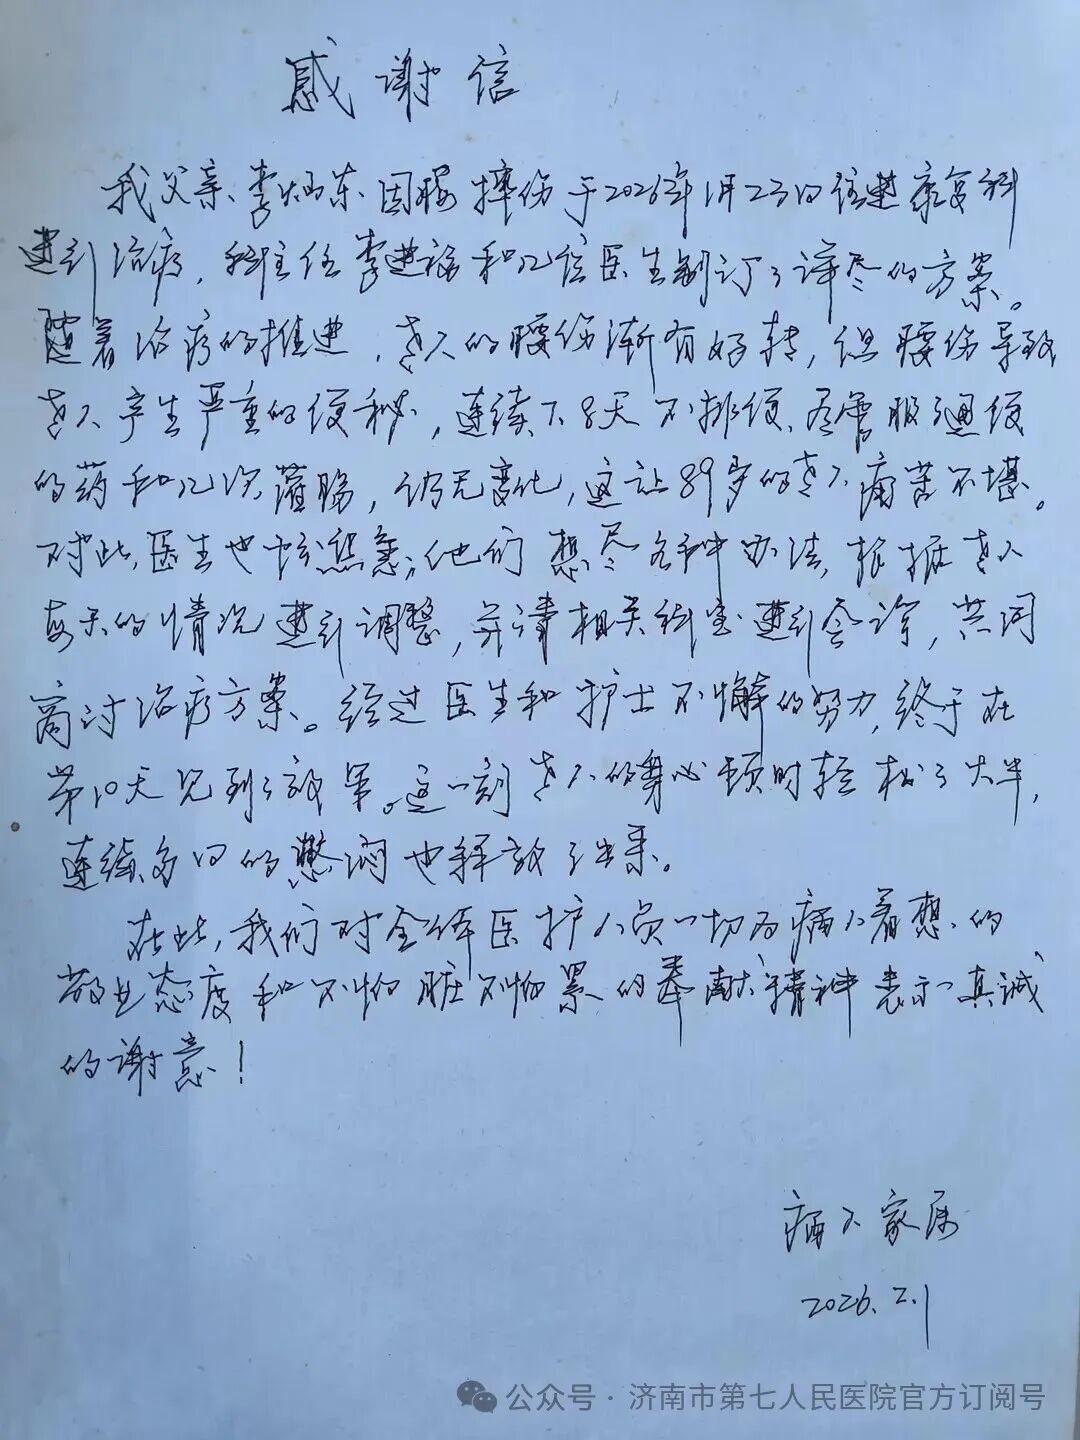 感谢信
我父亲李炳东因腰摔伤于2026年1月23日住进康复科
进行治疗，科主任李进福和几位医生制订了详尽的方案。
随着治疗的推进，老人的腰伤渐有好转，但腰伤导致
老人产生严重的便秘，连续7、8天不排便、尽管服了通便
的药和几次灌肠，仍无变化，这让89岁的老人痛苦不堪。
对此，医生也十分焦急；他们想尽各种办法，根据老人
每天的情况进行调整，并请相关科室进行会诊，共同
商讨治疗方案。经过医生和护士不懈的努力，终于在
第10天见到了效果。这一刻老人的身心顿时轻松了大半，
连续多日的憋闷也释放了出来。
在此，我们对全体医护人员一切为病人着想的
敬业态度和不怕脏不怕累的奉献精神表示真诚
的谢意！
病人家属
2026.2.1
公众号·济南市第七人民医院官方订阅号